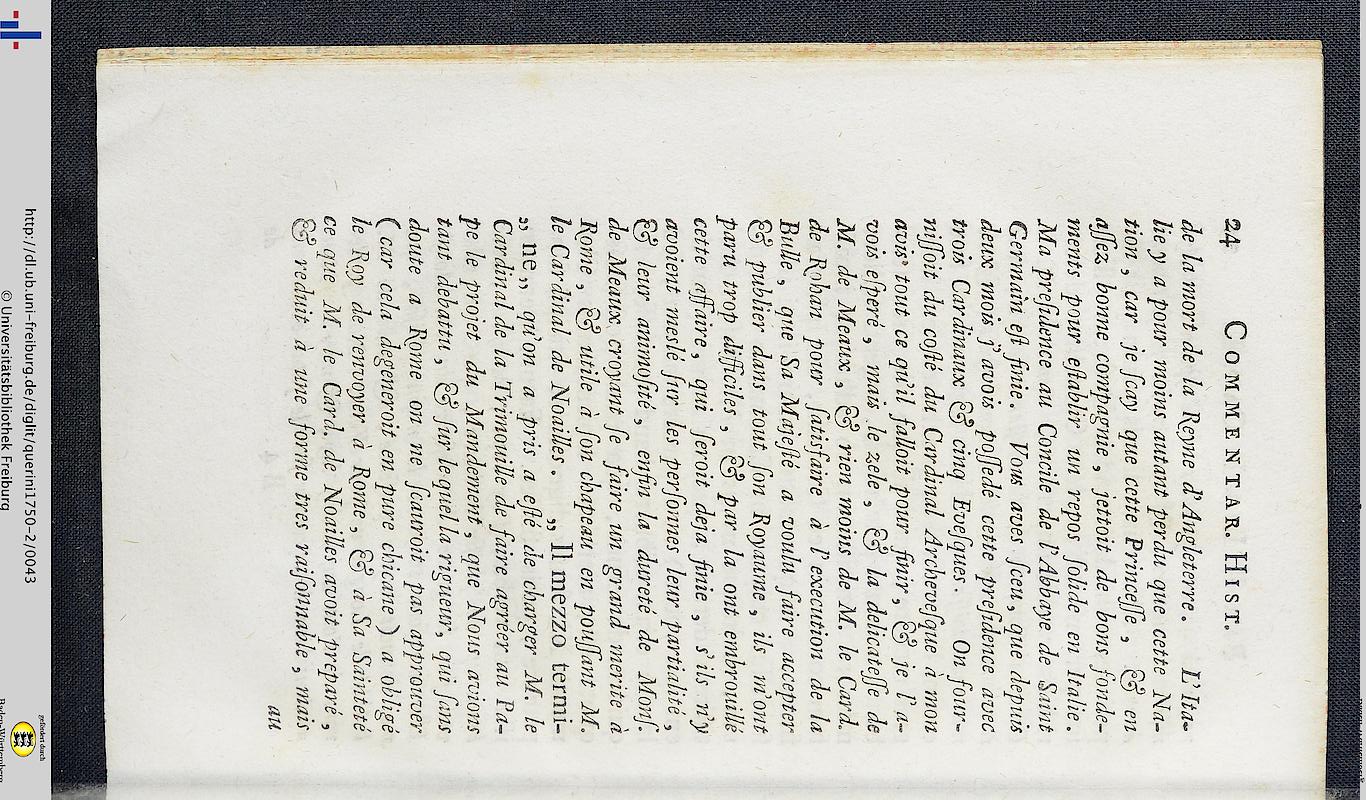 24 COMMENTAR. HIST.
de la mort de la Reyne d'Angleterre. L'Ita-
lie y a pour moins autant perdu que cette Na-
tion, car je sçay que cette Princesse, & en
assez bonne compagnie, jettoit de bons fonde-
ments pour establir un repos solide en Italie.
Ma presidence au Concile de l'Abbaye de Saint
Germain est finie. Vous aves sceu, que depuis
deux mois j'avois possedé cette presidence avec
trois Cardinaux & cinq Evesques. On four-
nissoit du costé du Cardinal Archevesque à mon
avis tout ce qu'il falloit pour finir, & je l'a-
vois esperé, mais le zele, & la delicatesse de
M. de Meaux, & rien moins de M. le Card.
de Rohan pour satisfaire à l'execution de la
Bulle, que Sa Majesté a voulu faire accepter
& publier dans tout son Royaume, ils m'ont
paru trop difficiles, & par la ont embrouillé
cette affaire, qui seroit deja finie, s'ils n'y
avoient meslé sur les personnes leur partialité,
& leur animosité, enfin la dureté de Mons.
de Meaux croyant se faire un grand merite à
Rome, & utile à son chapeau en poussant M.
le Cardinal de Noailles. „ Il mezzo termi-
„ ne „ qu'on a pris a esté de charger M. le
Cardinal de la Trimouille de faire agréer au Pa-
pe le projet du Mandement, que Nous avions
tant debattu, & sur lequel la rigueur, qui sans
doute a Rome on ne sçauroit pas approuver
( car cela degeneroit en pure chicane ) a obligé
le Roy de renvoyer à Rome, & à Sa Sainteté
ce que M. le Card. de Noailles avoit preparé,
& reduit à une forme tres raisonnable, mais
au
http://dl.ub.uni-freiburg.de/diglit/querini1750-2/0043
© Universitätsbibliothek Freiburg
gefördert durch